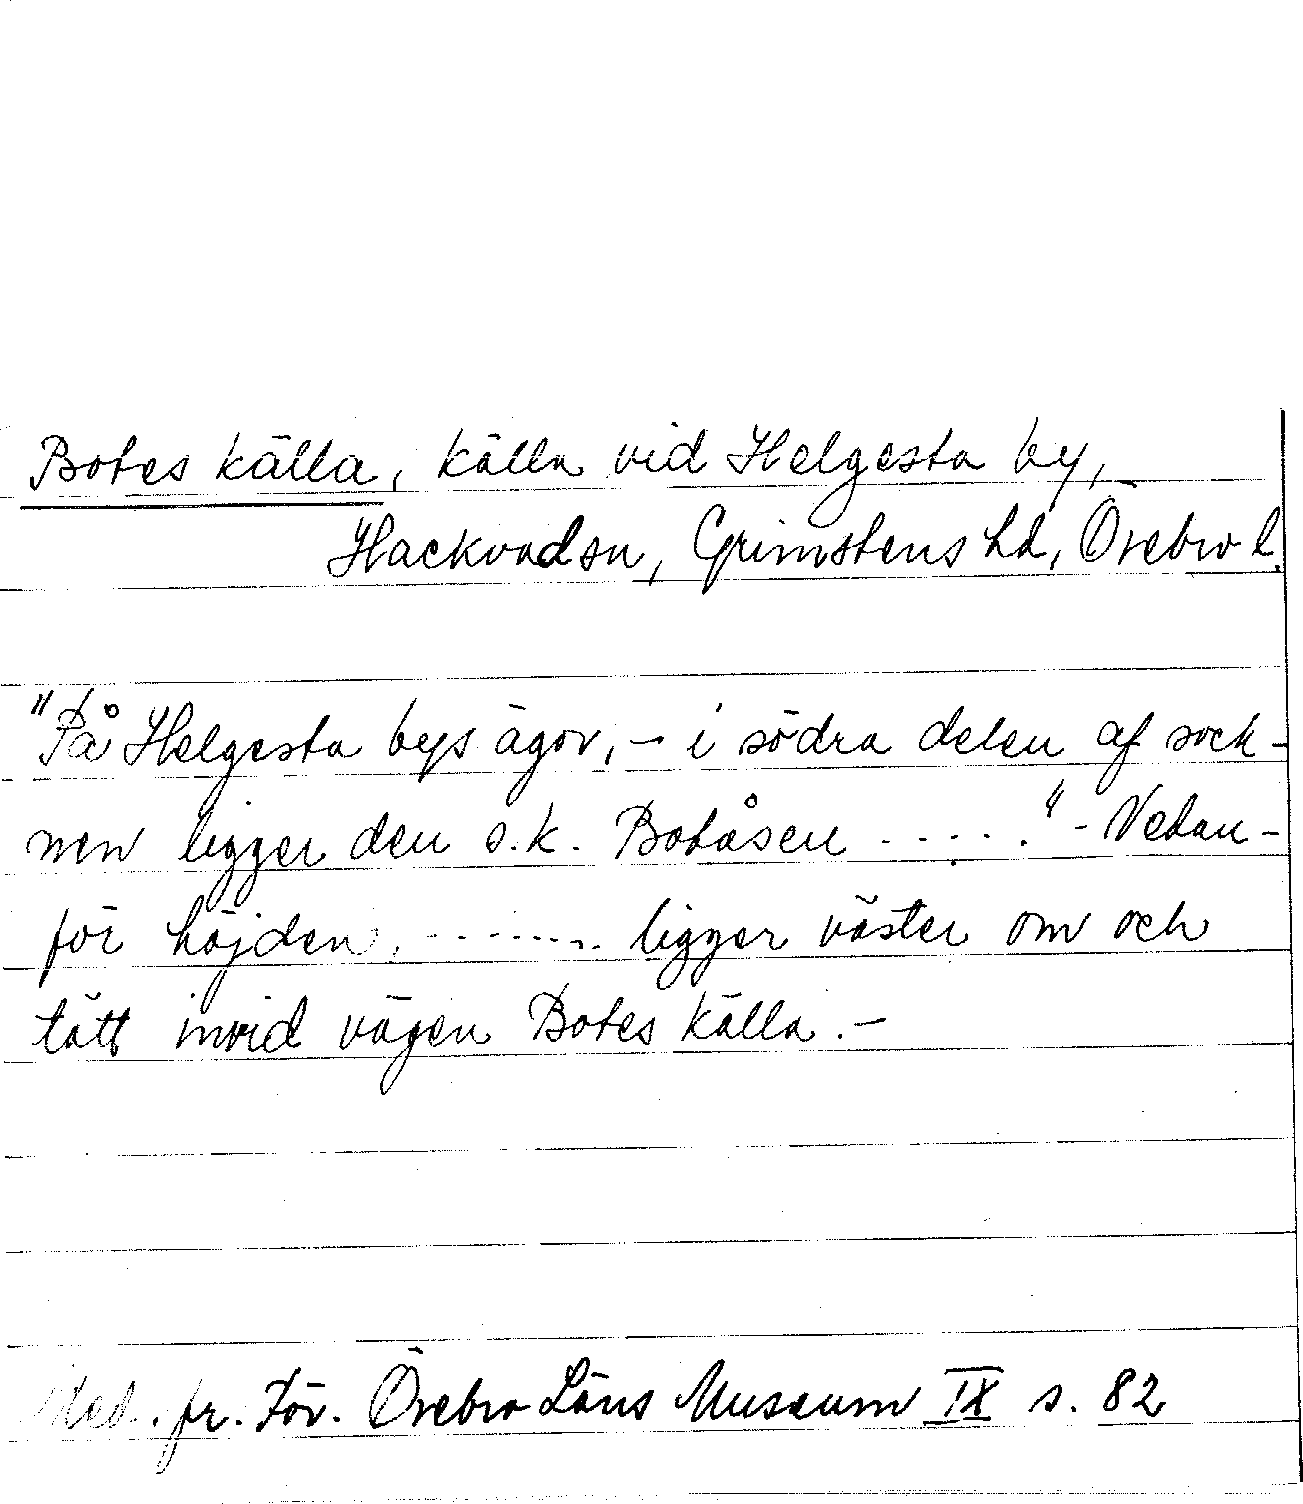 Botes källa, källa vid Helgesta by,
Hackvad sn, Grimstens hd, Örebro l.
"På Helgesta bys ägor, – i södra delen af sock-
nen ligger den s.k. Botåsen . . . . ." - Nedan-
för höjden, ........ ligger väster om och
tätt invid vägen Botes källa. –
Med. fr. För. Örebro Läns Museum IX s. 82